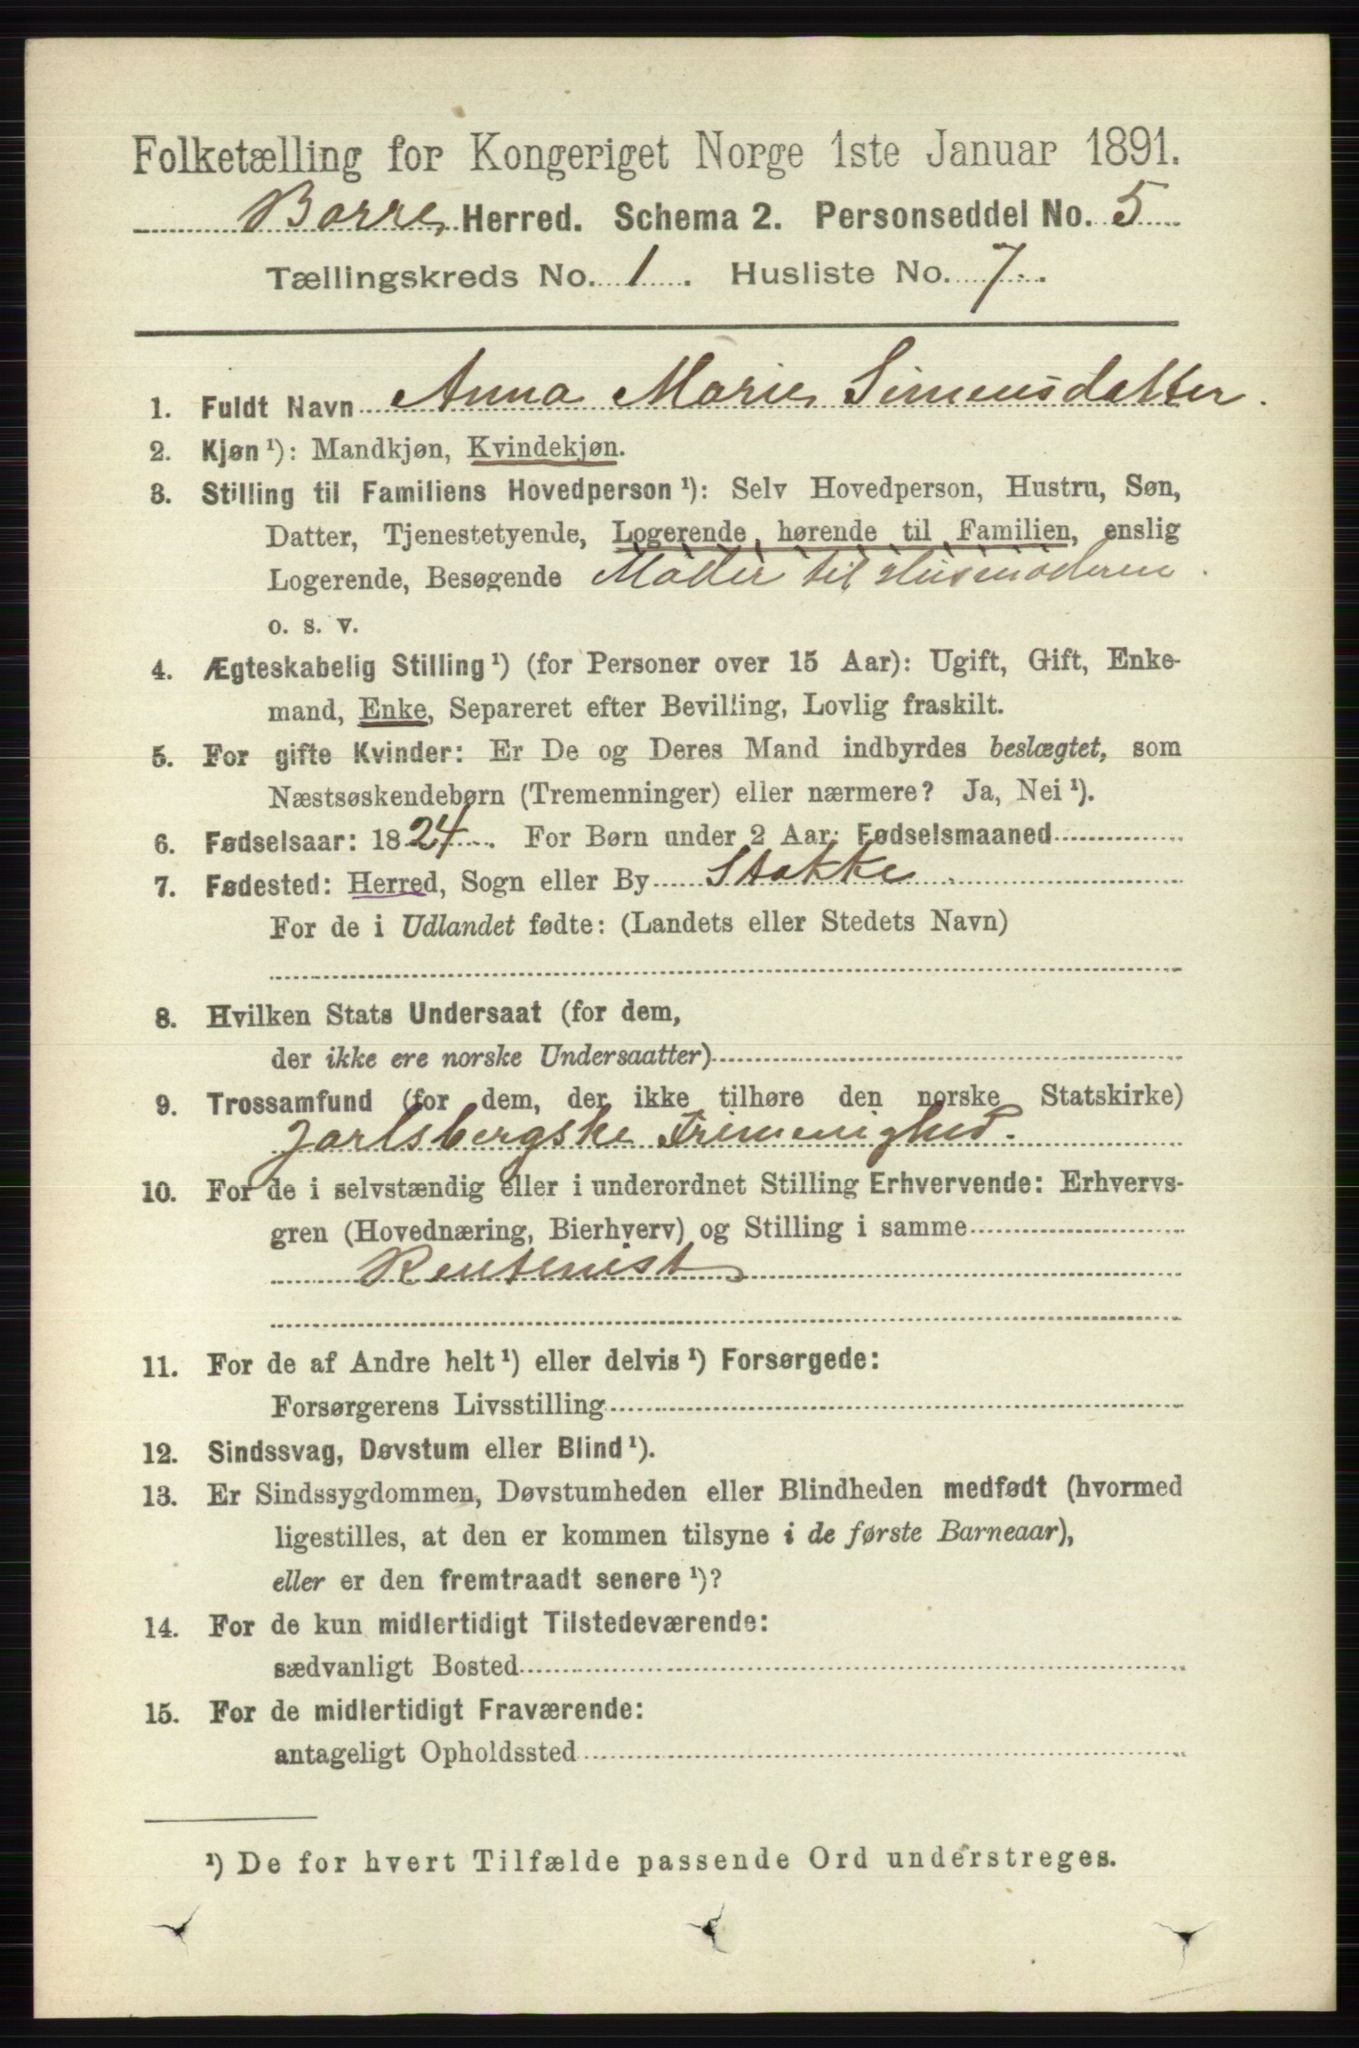 Folketælling for Kongeriget Norge 1ste Januar 1891.
Borre Herred. Schema 2. Personseddel No. 5
Tællingskreds No. 1. Husliste No. 7.
1. Fuldt Navn Anna Marie Simensdatter.
2. Kjøn¹): Mandkjøn, Kvindekjøn.
3. Stilling til Familiens Hovedperson¹): Selv Hovedperson, Hustru, Søn,
Datter, Tjenestetyende, Logerende hørende til Familien, enslig
Logerende, Besøgende Moder til Husmoderen.
o. s. v.
4. Ægteskabelig Stilling¹) (for Personer over 15 Aar): Ugift, Gift, Enke-
mand, Enke, Separeret efter Bevilling, Lovlig fraskilt.
5. For gifte Kvinder: Er De og Deres Mand indbyrdes beslægtet, som
Næstsøskendebørn (Tremenninger) eller nærmere? Ja, Nei¹).
6. Fødselsaar: 1824. For Børn under 2 Aar: Fødselsmaaned
7. Fødested: Herred, Sogn eller By Stokke.
For de i Udlandet fødte: (Landets eller Stedets Navn)
8. Hvilken Stats Undersaat (for dem,
der ikke ere norske Undersaatter)
9. Trossamfund (for dem, der ikke tilhøre den norske Statskirke)
Jarlsbergske Frimenighed.
10. For de i selvstændig eller i underordnet Stilling Erhvervende: Erhvervs-
gren (Hovednæring, Bierhverv) og Stilling i samme
Rentenist
11. For de af Andre helt¹) eller delvis¹) Forsørgede:
Forsørgerens Livsstilling
12. Sindssvag, Døvstum eller Blind¹).
13. Er Sindssygdommen, Døvstumheden eller Blindheden medfødt (hvormed
ligestilles, at den er kommen tilsyne i de første Barneaar),
eller er den fremtraadt senere¹)?
14. For de kun midlertidigt Tilstedeværende:
sædvanligt Bosted
15. For de midlertidigt Fraværende:
antageligt Opholdssted
¹) De for hvert Tilfælde passende Ord understreges.